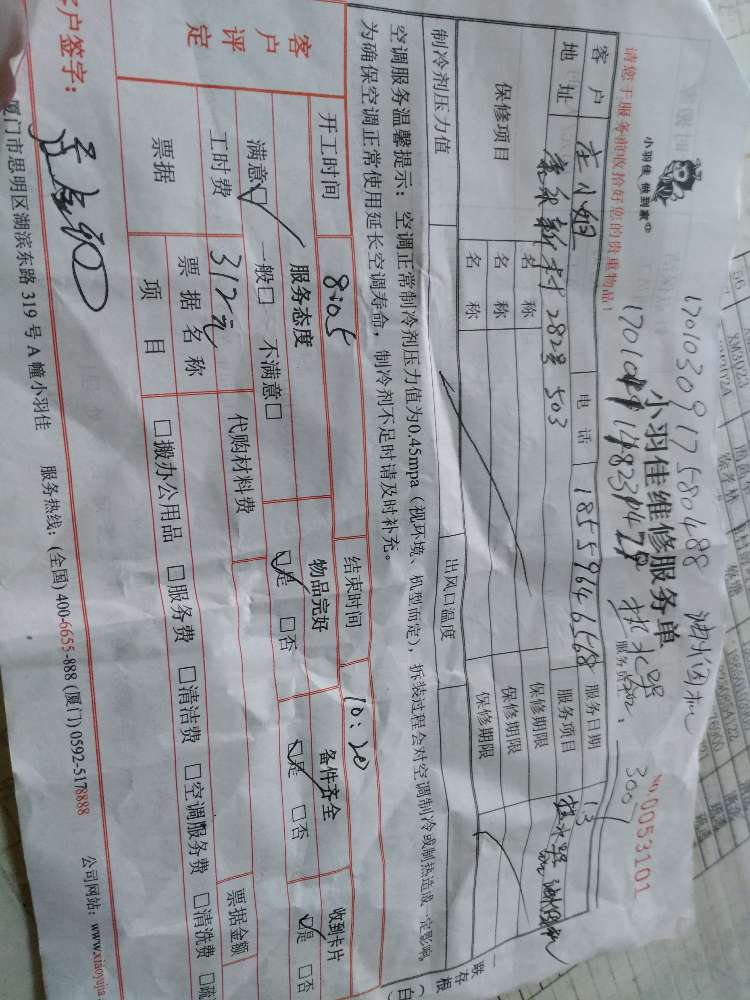 1701030917580488 油烟机
小羽佳 做到家
小羽佳维修服务单
热水器
3007
No.0053101
请您于服务前收拾好您的贵重物品！
服务员工：
客户 庄小姐 电话 18559646568 服务日期 13
地址 新村282号503 服务项目 热水器 油烟机
保修项目 名称 保修期限
名称 保修期限
名称 保修期限
制冷剂压力值 出风口温度
空调服务温馨提示：空调正常制冷剂压力值为0.45mpa（视环境、机型而定），拆装过程会对空调制冷或制热造成一定影响，
为确保空调正常使用延长空调寿命，制冷剂不足时请及时补充。
一存根（白
联
开工时间 8:05 结束时间 10:20
客户评定 服务态度 物品完好 备件齐全 收到卡片
满意□ 一般□ 不满意□ □是 □否 □是 □否 □是 □否
工时费 312元 代购材料费
票据 票据名称 票据金额
项目 □搬办公用品 □服务费 □清洁费 □空调服务费 □清洗费 □疏
客户签字：
厦门市思明区湖滨东路 319 号 A 幢小羽佳 服务热线：(全国) 400-6655-888 (厦门) 0592-5178888 公司网站：www.xiaoyujia.